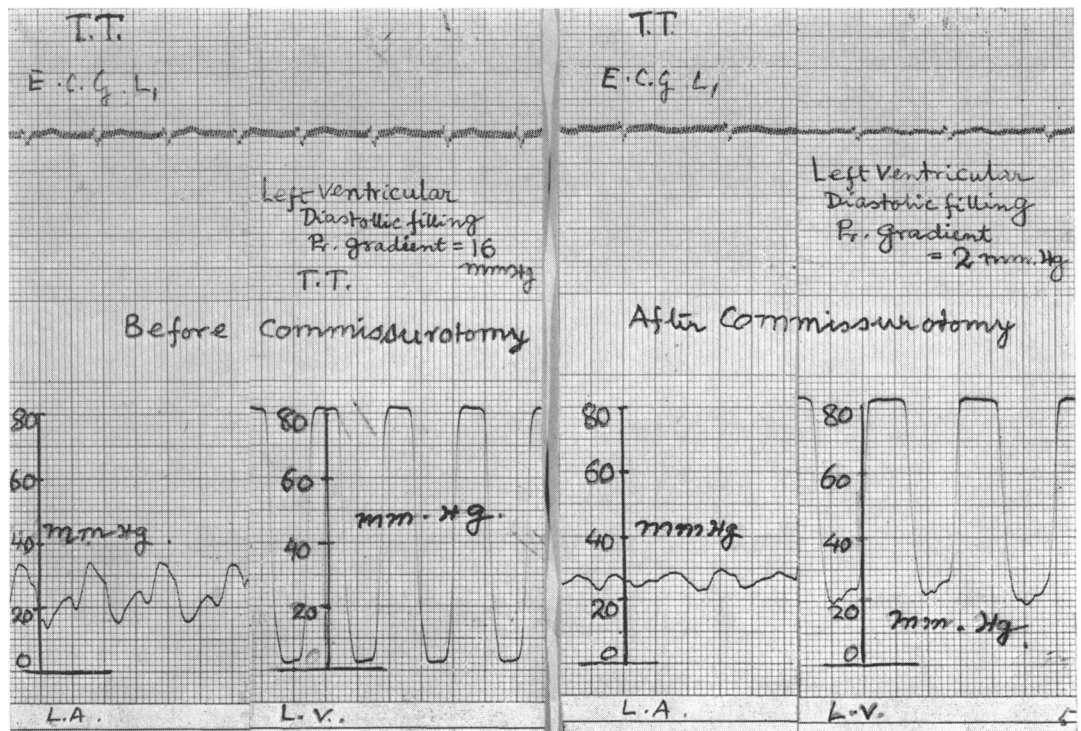 T.T.
E.C.G. L1
Left Ventricular
Diastollic filling
Pr. gradient = 16
mmHg
T.T.
Before Commissurotomy
80
60
mm Hg.
40
20
0
L.A.
80
60
mm. Hg.
40
20
L.V.
T.T
E.C.G L1
Left Ventricular
Diastolic filling
Pr. gradient
= 2 mm.Hg
After Commissurotomy
80
60
mmHg
40
20
0
L.A.
80
60
40
20
mm. Hg.
0
L.V.